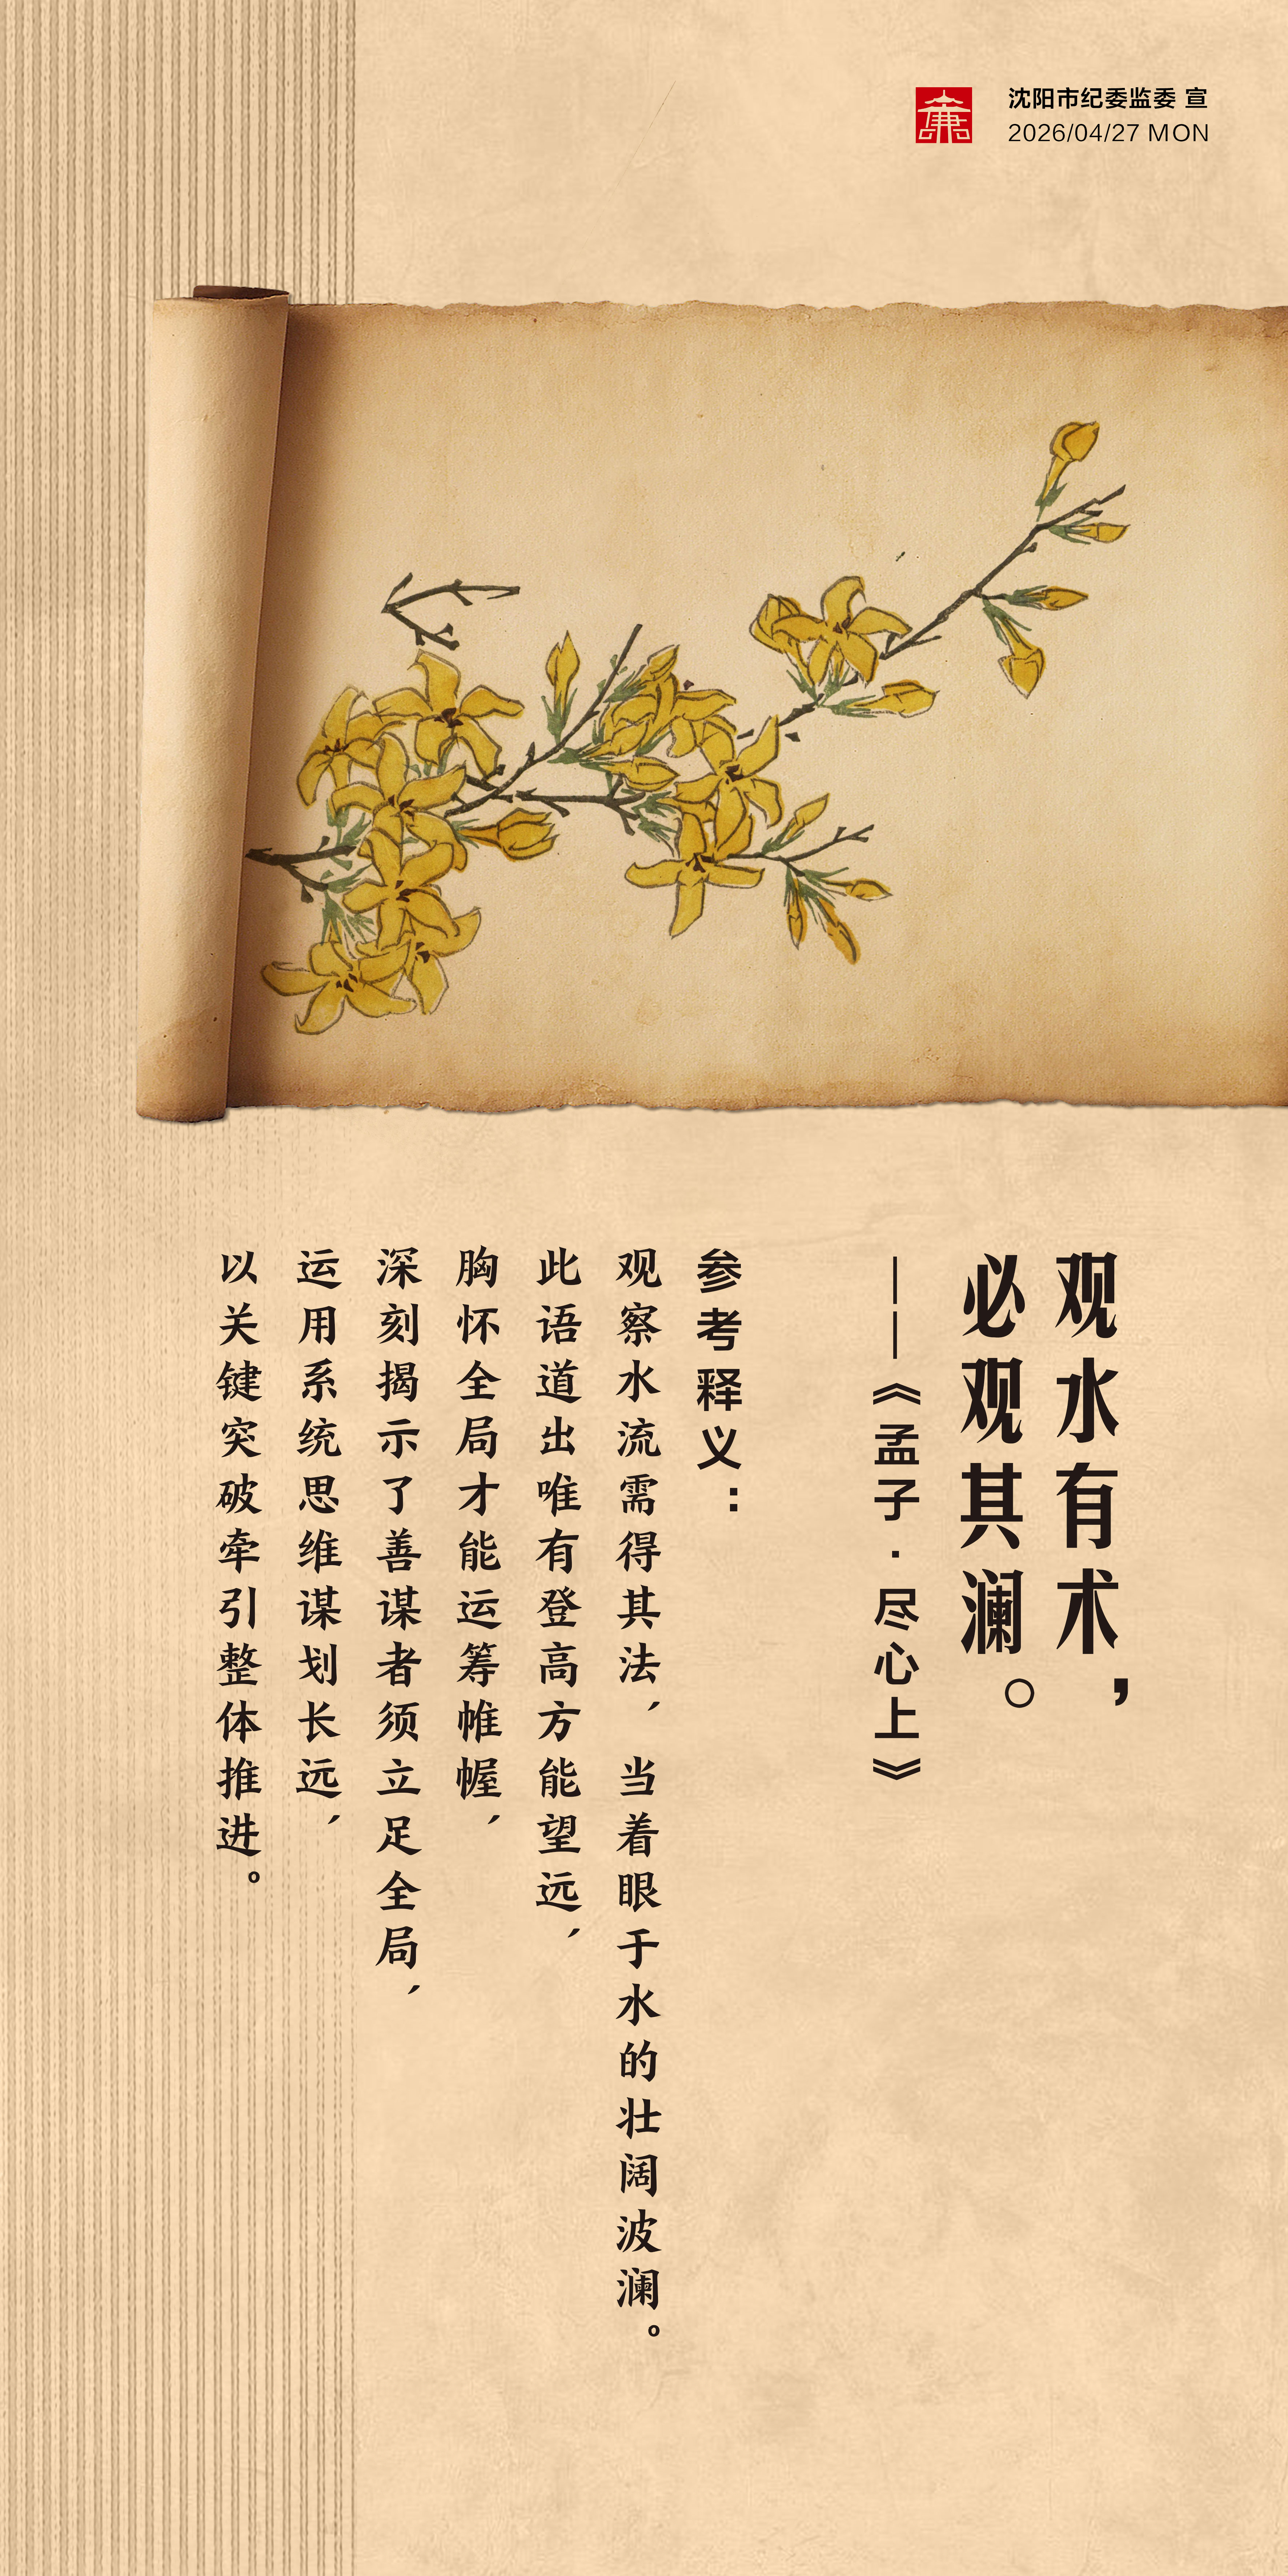 沈阳市纪委监委 宣
2026/04/27 MON
观水有术，
必观其澜。
——《孟子·尽心上》
参考释义：
观察水流需得其法，当着眼于水的壮阔波澜。
此语道出唯有登高方能望远，
胸怀全局才能运筹帷幄，
深刻揭示了善谋者须立足全局，
运用系统思维谋划长远，
以关键突破牵引整体推进。